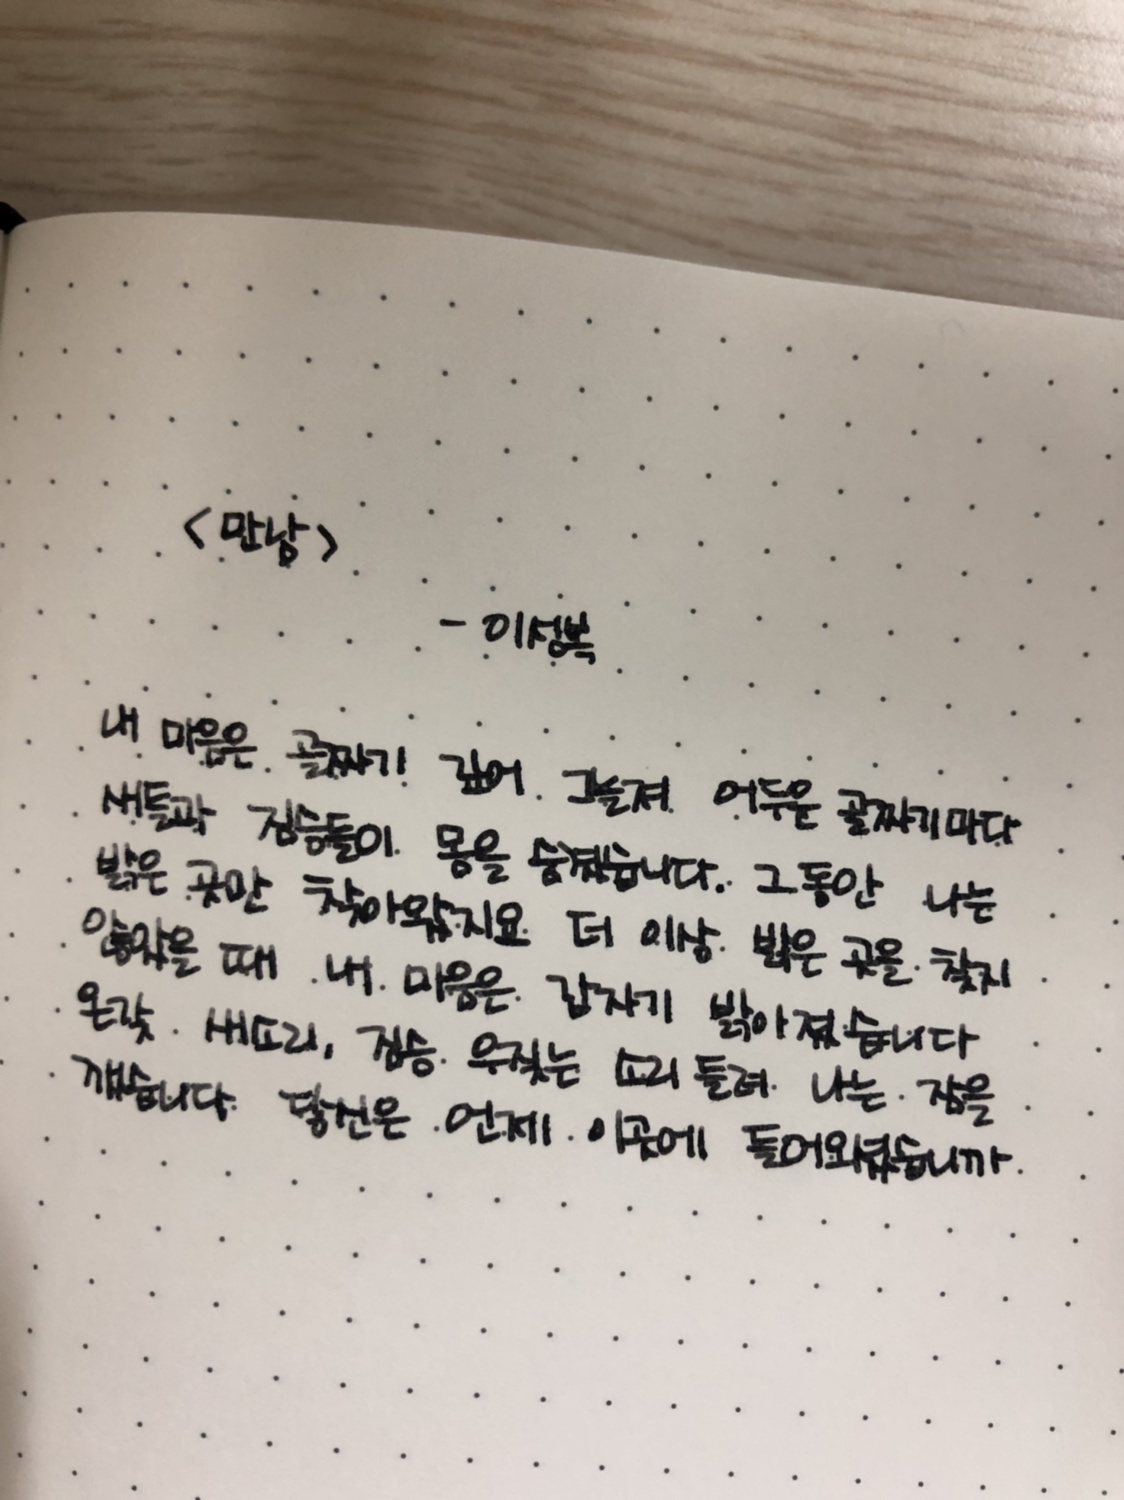 <만남>
- 이성복
내 마음은 골짜기! 깊어 그늘져 어두운 골짜기마다
새들과 짐승들이 몸을 숨겼습니다. 그동안 나는
밝은 곳만 찾아왔지요 더 이상 밝은 곳을 찾지
않았을 때 내 마음은 갑자기 밝아졌습니다
온갖 새소리, 짐승 우짖는 소리 들려 나는 잠을
깨었습니다. 당신은 언제 이곳에 들어오셨습니까